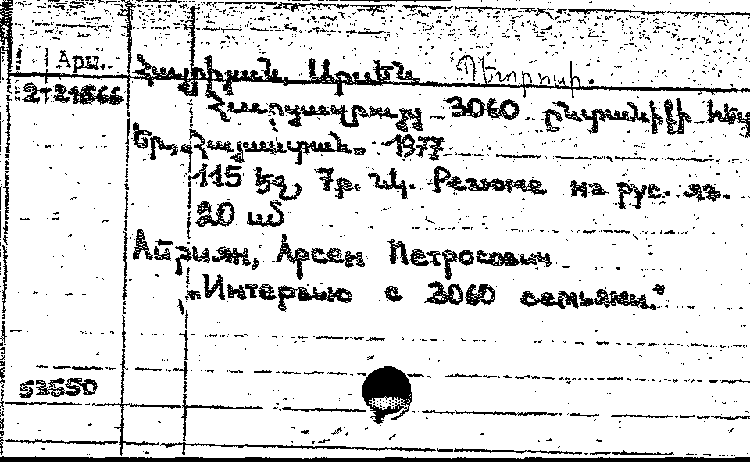 Ары.
2-21566
Հայրիյան, Արսեն Պետրոսի.
Հարցազրույց 3060 ընտանիքի հետ
Եր., Հայաստան. 1977
115 էջ, 7ր. նկ. Резюме на рус. яз.
20 սմ
Айриян, Арсен Петросович
„Интервью с 3060 семьями."
53550